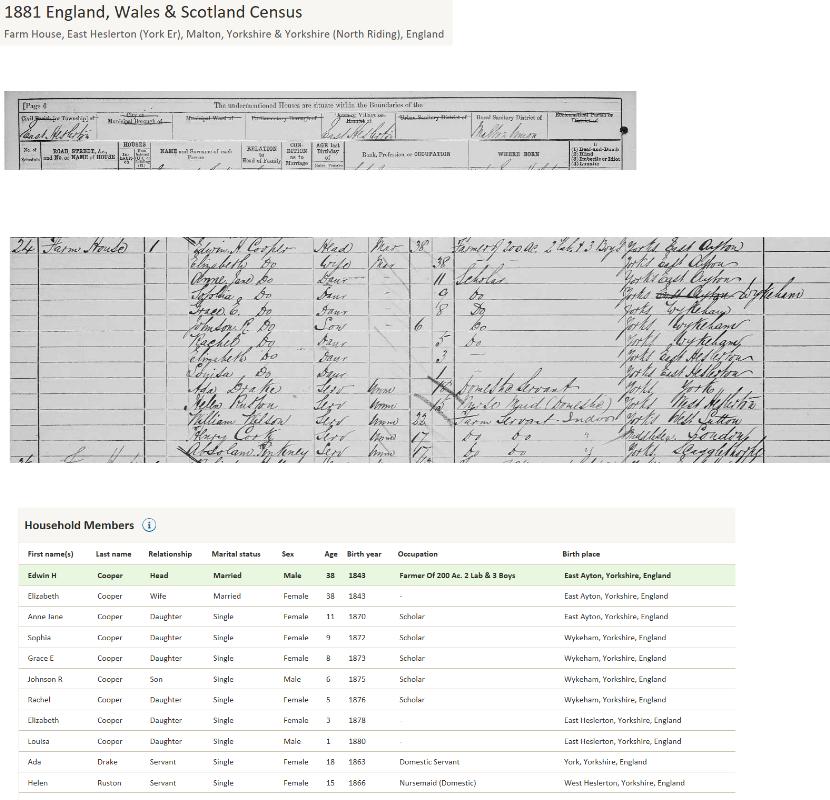 1881 England, Wales & Scotland Census
Farm House, East Heslerton (York Er), Malton, Yorkshire & Yorkshire (North Riding), England
[Page 6 The undermentioned Houses are situate within the Boundaries of the
Civil Parish [or Township] of City or Municipal Borough of Municipal Ward of Parliamentary Borough of Town or Village or Hamlet of Urban Sanitary District of Rural Sanitary District of Ecclesiastical Parish or District of
East Heslerton East Heslerton Malton Union
No. of Schedule ROAD, STREET, &c., and No. or NAME of HOUSE HOUSES NAME and Surname of each Person RELATION to Head of Family CON-DITION as to Marriage AGE last Birthday of Rank, Profession, or OCCUPATION WHERE BORN (1) Deaf-and-Dumb (2) Blind (3) Imbecile or Idiot (4) Lunatic
24 Farm House 1 Edwin H Cooper Head Mar 38 Farmer of 200 ac. 2 Lab & 3 Boys Yorks East Ayton
Elizabeth Do Wife Mar 38 Yorks East Ayton
Anne Jane Do Daur 11 Scholar Yorks East Ayton
Sophia Do Daur 9 Do Yorks East Ayton Wykeham
Grace E. Do Daur 8 Do Yorks Wykeham
Johnson R. Do Son 6 Do Yorks Wykeham
Rachel Do Daur 5 Do Yorks Wykeham
Elizabeth Do Daur 3 — Yorks East Heslerton
Louisa Do Daur 1 Yorks East Heslerton
Ada Drake Serv Unm 18 Domestic Servant Yorks York
Helen Ruston Serv Unm 15 Nurse Maid (Domestic) Yorks West Heslerton
William Wilson Serv Unm 22 Farm Servant Indoor Yorks West Lutton
Henry Cook Serv Unm 17 Do Do " Middlesex London
Absolam Pinkney Serv Unm 17 Do Do " Yorks Scagglethorpe
Household Members i
First name(s) Last name Relationship Marital status Sex Age Birth year Occupation Birth place
Edwin H Cooper Head Married Male 38 1843 Farmer Of 200 Ac. 2 Lab & 3 Boys East Ayton, Yorkshire, England
Elizabeth Cooper Wife Married Female 38 1843 - East Ayton, Yorkshire, England
Anne Jane Cooper Daughter Single Female 11 1870 Scholar East Ayton, Yorkshire, England
Sophia Cooper Daughter Single Female 9 1872 Scholar Wykeham, Yorkshire, England
Grace E Cooper Daughter Single Female 8 1873 Scholar Wykeham, Yorkshire, England
Johnson R Cooper Son Single Male 6 1875 Scholar Wykeham, Yorkshire, England
Rachel Cooper Daughter Single Female 5 1876 Scholar Wykeham, Yorkshire, England
Elizabeth Cooper Daughter Single Female 3 1878 - East Heslerton, Yorkshire, England
Louisa Cooper Daughter Single Male 1 1880 - East Heslerton, Yorkshire, England
Ada Drake Servant Single Female 18 1863 Domestic Servant York, Yorkshire, England
Helen Ruston Servant Single Female 15 1866 Nursemaid (Domestic) West Heslerton, Yorkshire, England